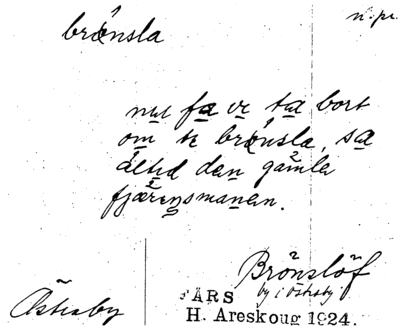 brönsla
n. pr.
nu fa vi ta bort
om te brönsla, sa
altid dan gamla
fjärensmanen.
Brönslöf
by i Östraby
Östraby
FÄRS
H. Areskoug 1924.